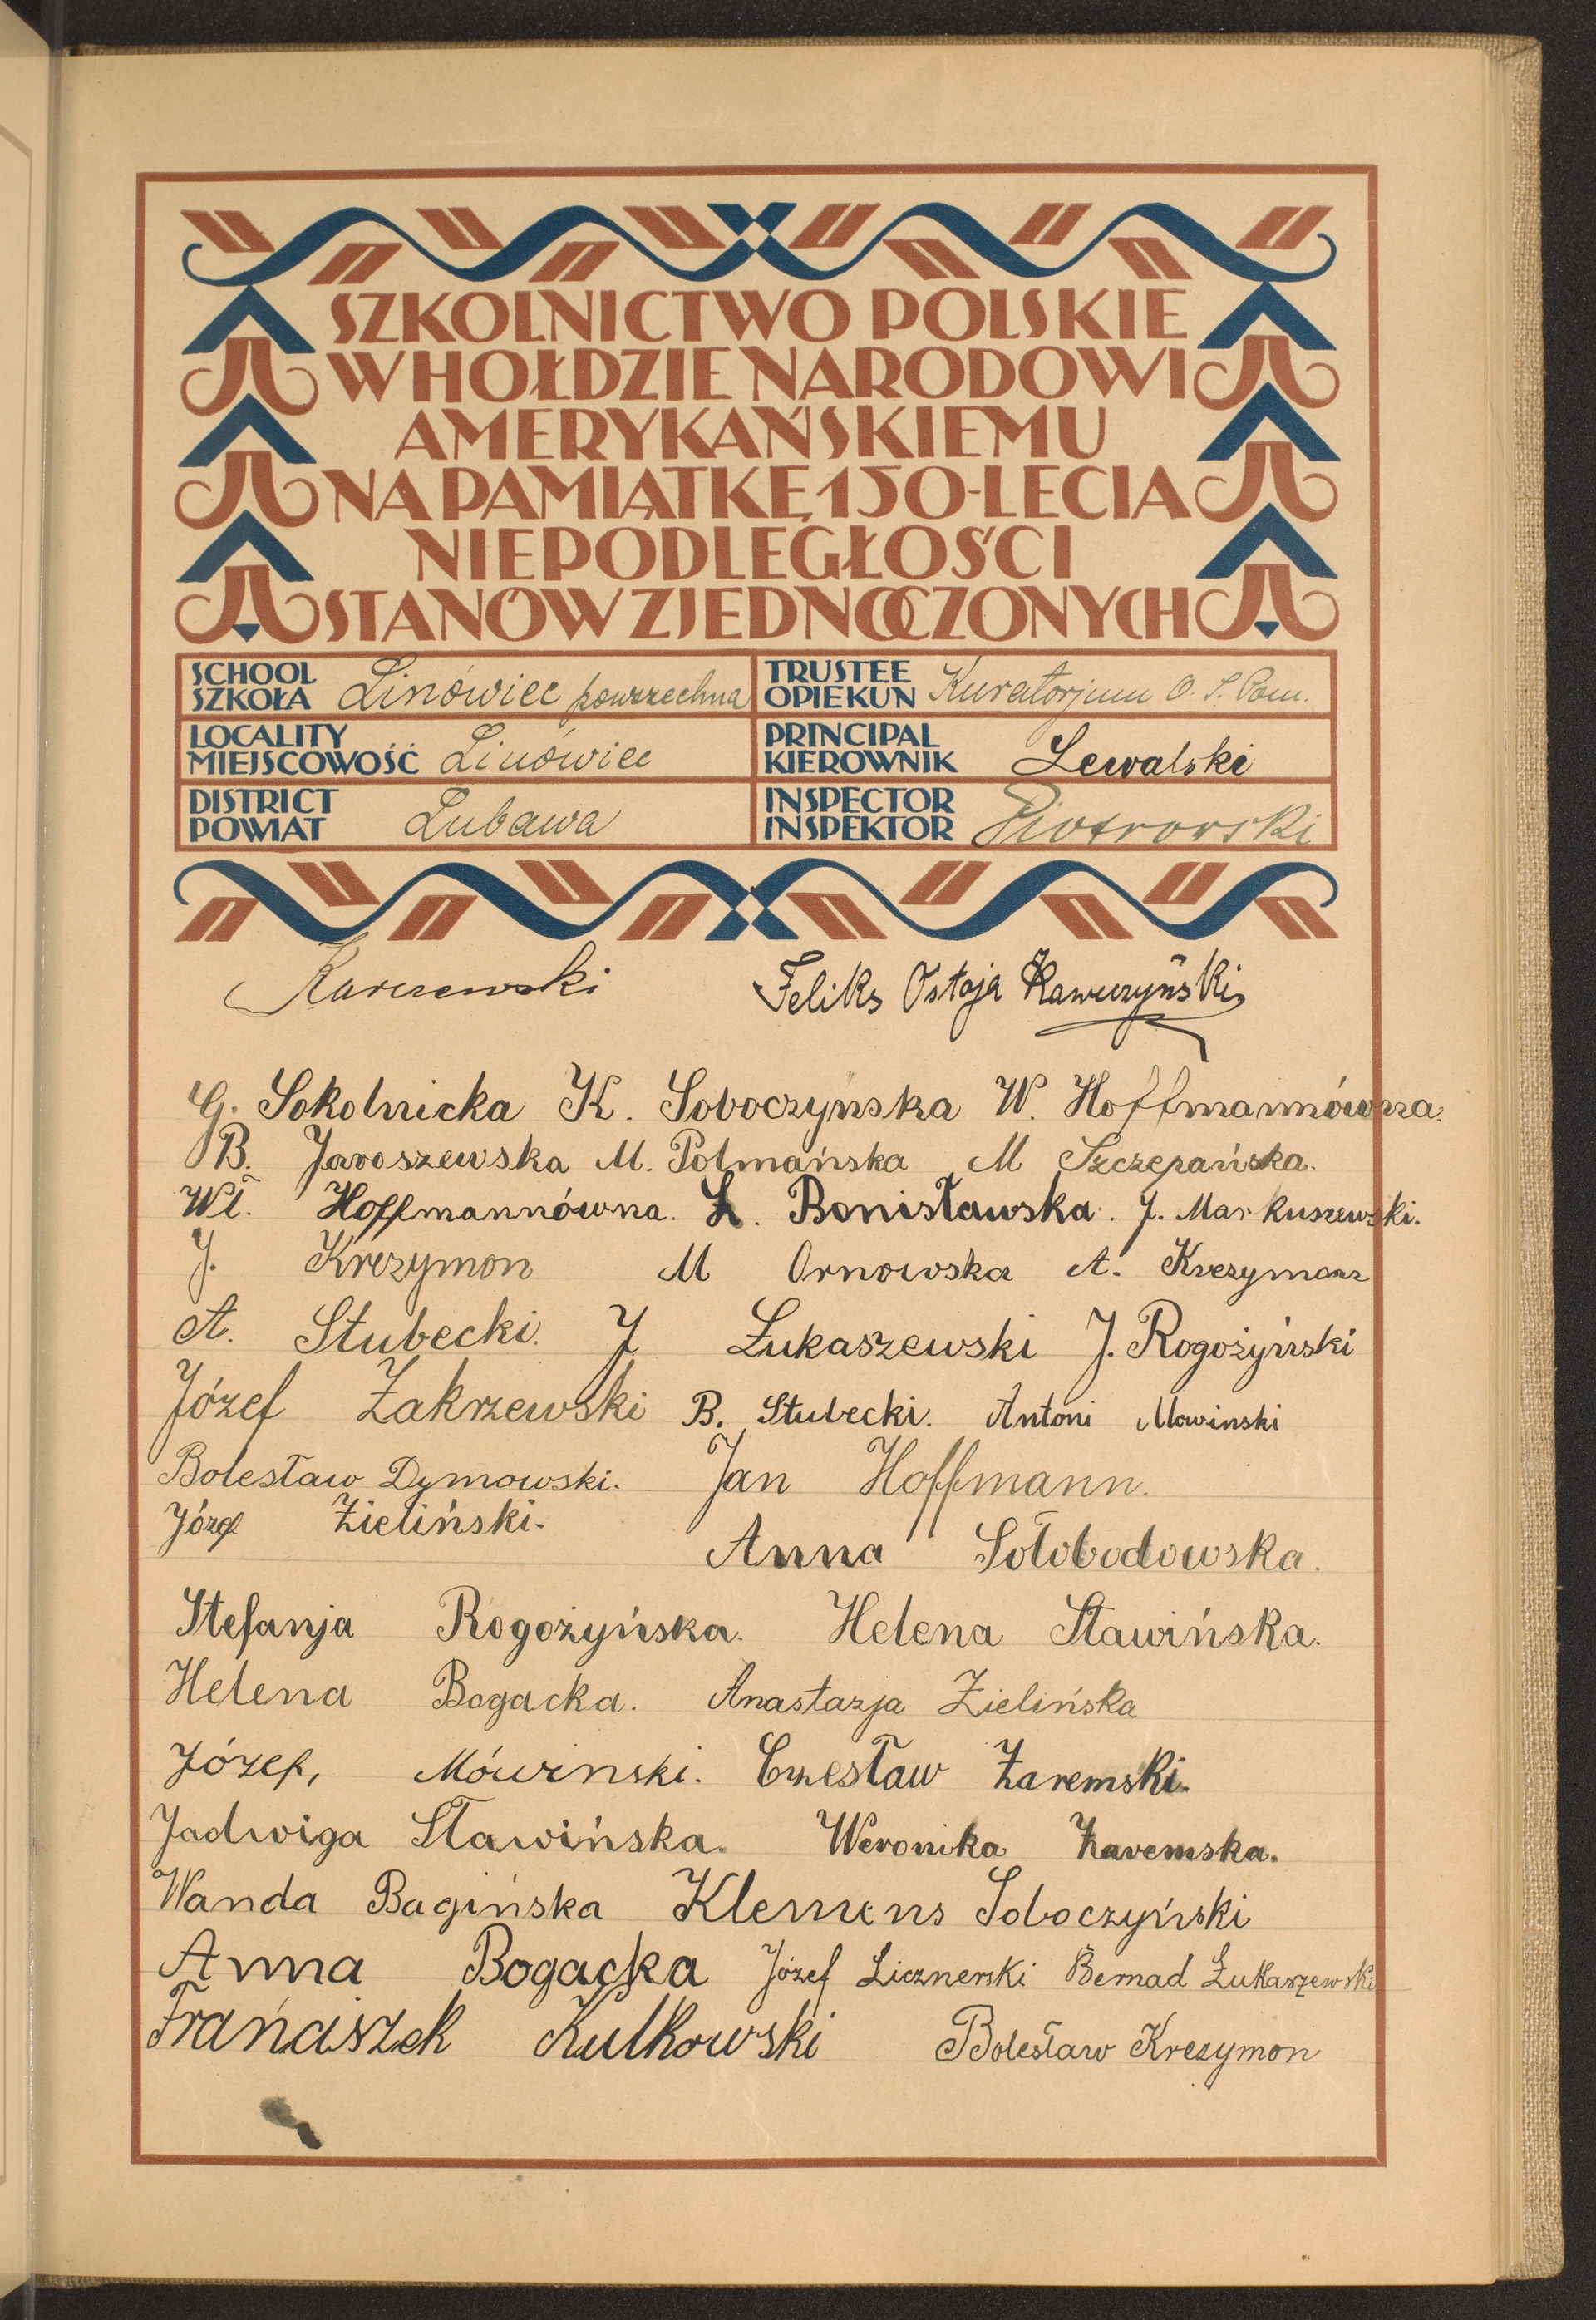 SZKOLNICTWO POLSKIE
W HOŁDZIE NARODOWI
AMERYKAŃSKIEMU
NA PAMIĄTKĘ 150-LECIA
NIEPODLEGŁOŚCI
STANÓW ZJEDNOCZONYCH
SCHOOL
SZKOŁA Linówiec powszechna
TRUSTEE
OPIEKUN Kuratorjum O. S. Pom.
LOCALITY
MIEJSCOWOŚĆ Linówiec
PRINCIPAL
KIEROWNIK Lewalski
DISTRICT
POWIAT Lubawa
INSPECTOR
INSPEKTOR Piotrowski
Karczewski Feliks Ostoja Kawczyński
G. Sokolnicka K. Soboczyńska W. Hoffmannówna.
B. Jaroszewska M. Polmańska M Szczepańska.
Wł. Hoffmannówna. L. Bonisławska. J. Markuszewski.
J. Krezymon M Ornowska A. Krezymon
A. Stubecki. J Łukaszewski J. Rogożyński
Józef Zakrzewski B. Stubecki. Antoni Mowinski
Bolesław Dymowski. Jan Hoffmann.
Józef Zieliński.
Anna Sołobodowska.
Stefanja Rogożyńska. Helena Stawińska.
Helena Bogacka. Anastazja Zielińska
Józef, Mówinski. Czesław Zaremski.
Jadwiga Sławińska. Weronika Zaremska.
Wanda Bagińska Klemens Soboczyński
Anna Bogacka Józef Licznerski Bernad Łukaszewski
Franciszek Kulkowski Bolesław Krezymon